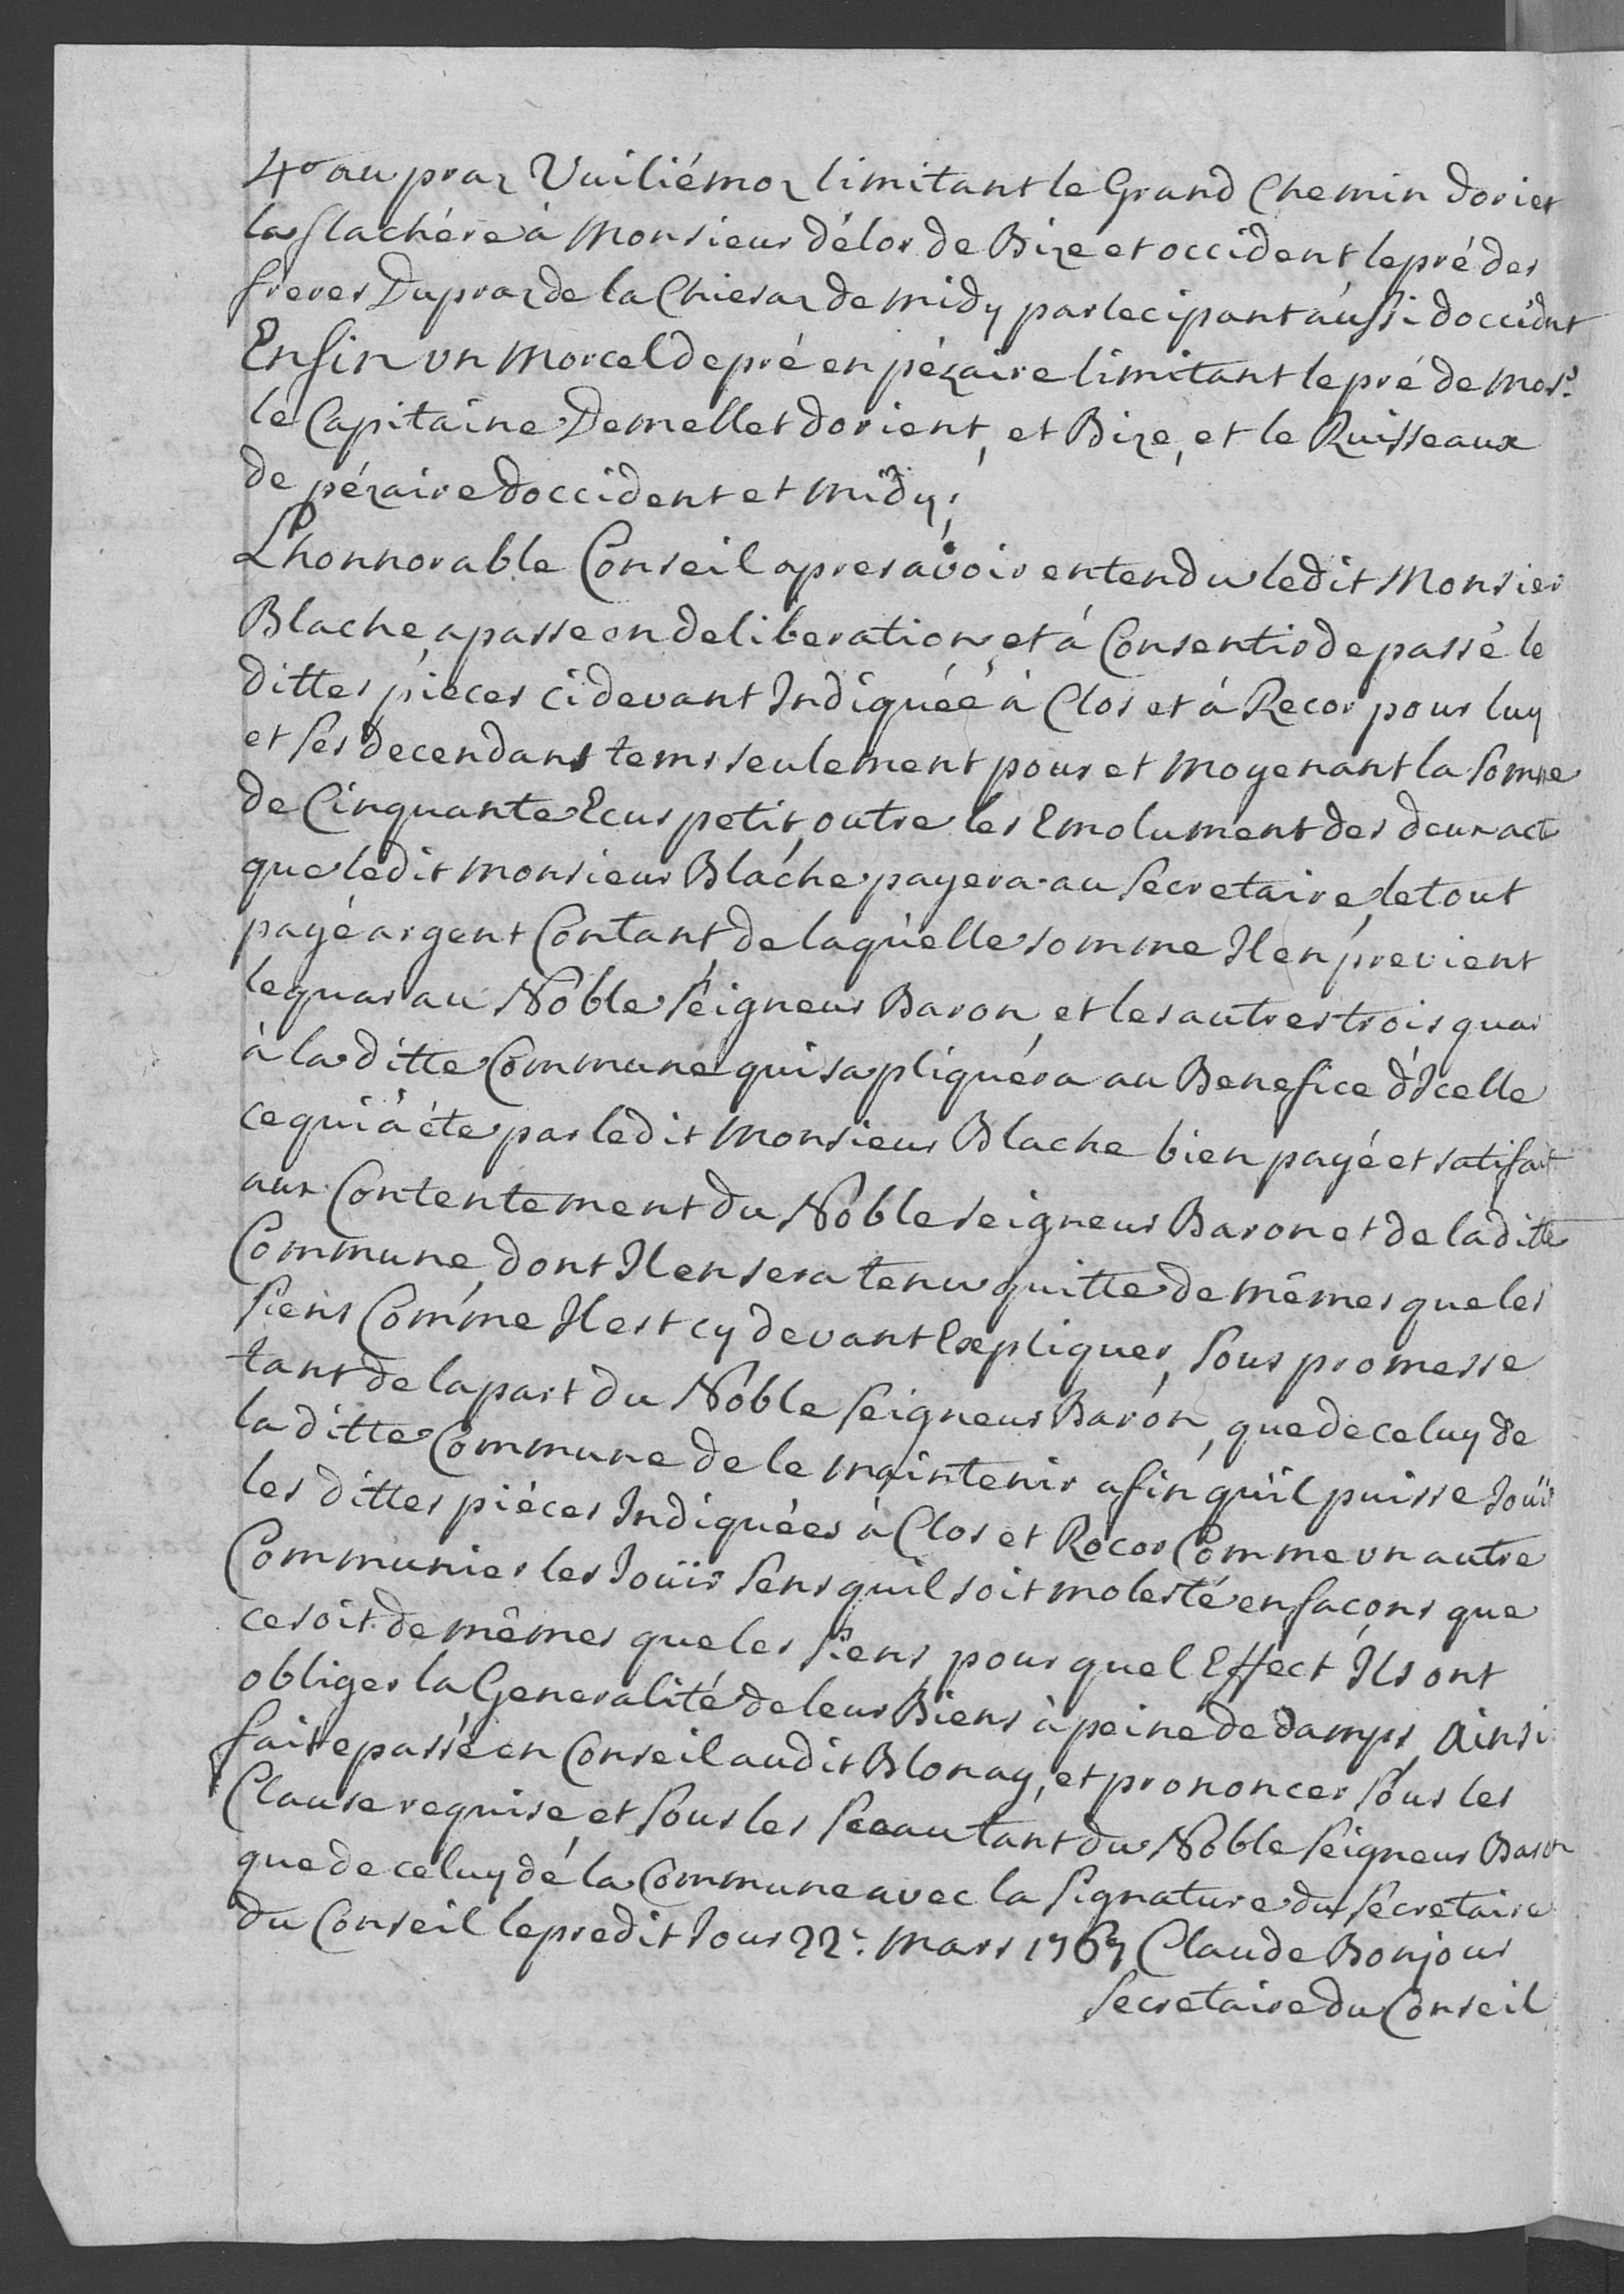 4.º au praz Vuiliémoz limitant le Grand Chemin dorien
la flachére à Monsieur délor de Bize et occident, le pré des
freres Dupraz de la Chiesaz de midy partecipant aussi doccidnt
Enfin un Morcel de pré en pézaire limitant le pré de Mosr.
le Capitaine Demellet dorient, et Bize, et le Ruisseaux
de pézaire doccident et midy;
L'honnorable Conseil apres avoir entendu ledit Monsier
Blache, a passe en deliberation, et à Consentir de passé le
dittes pieces ci devant Indiquée à Clos et à Recor pour luy
et ses decendans tems seulement pour et moyenant la Somme
de Cinquante Ecus petit, outre les Emolument des deux act
que ledit Monsieur Blache payera au Secretaire, le tout
payé argent Contant, de laquelle somme Il en previent
le quar au Noble Seigneur Baron, et les autres trois quar
à la ditte Commune qui sapliquéra au Benefice d'Icelle
ce qui à éte par ledit Monsieur Blache bien payé et satifait
aux Contentement du Noble Seigneur Baron et de la ditte
Commune, dont Il en sera tenu quitte de mêmes que les
Siens Comme Il est cy devant Expliquer, Sous promesse
tant de la part du Noble Seigneur Baron, que de celuy de
la ditte Commune de le maintenir afin qu'il puisse Joüir
les dittes piéces Indiquées à Clos et Recor Comme un autre
Communier les Joüir Sens quil soit molesté en façons que
ce soit de mêmes que les Siens, pour quel Effect Ils ont
obliger la Generalité de leur Biens à peine de damps, Ainsi
fait e passé en Conseil audit Blonay, et prononcer Sous les
Clause requise et Sous les Sceau tant du Noble Seigneur Baron
que de celuy de la Commune avec la Signature du Secretaire
du Conseil le predit Jour 22e. Mars 1767 Claude Bonjour
Secretaire du Conseil